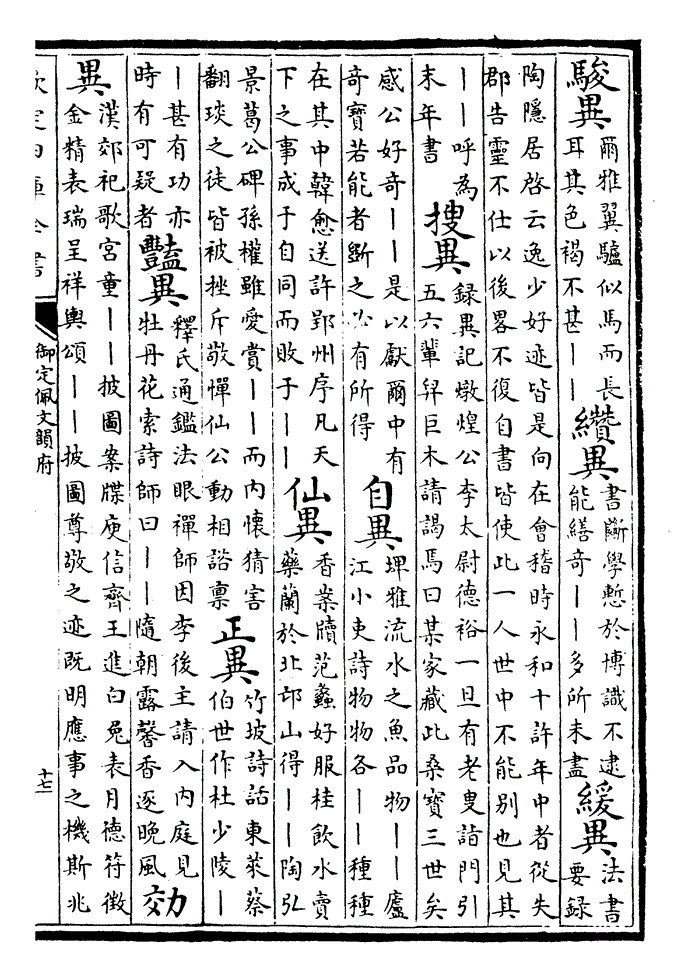 駿異爾雅翼驢似馬而長耳其色褐不甚｜｜纘異書斷學慙於博識不逮能繕奇｜｜多所未盡緩異法書要録
陶隱居啓云逸少好迹皆是向在會稽時永和十許年中者從失郡告靈不仕以後畧不復自書皆使此一人世中不能別也見其
｜｜呼為末年書搜異録異記燉煌公李太尉德裕一旦有老叟詣門引五六輩舁巨木請謁焉曰某家藏此桑寶三世矣
感公好奇｜｜是以獻爾中有奇寶若能者斷之必有所得自異埤雅流水之魚品物｜｜廬江小吏詩物物各｜｜種種
在其中韓愈送許郢州序凡天下之事成于自同而敗于｜｜仙異香案牘范蠡好服桂飲水賣藥蘭於北邙山得｜｜陶弘
景葛公碑孫權雖愛賞｜｜而内懷猜害翻琰之徒皆被挫斥敬憚仙公動相諮稟正異竹坡詩話東萊蔡伯世作杜少陵｜
｜甚有功亦時有可疑者豔異釋氏通鑑法眼禪師因李後主請入内庭見牡丹花索詩師曰｜｜隨朝露馨香逐晚風効
異漢郊祀歌宮童｜｜披圖案牒庾信齊王進白兔表月德符徵金精表瑞呈祥輿頌｜｜披圖尊敬之迹既明應事之機斯兆
欽定四庫全書
御定佩文韻府
十七